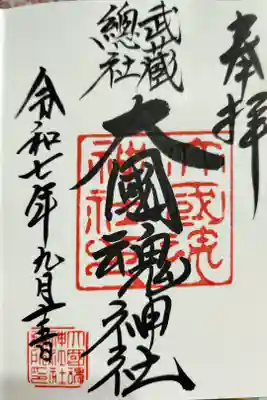 奉拝
武蔵
總社
大國魂神社
令和七年九月十三日